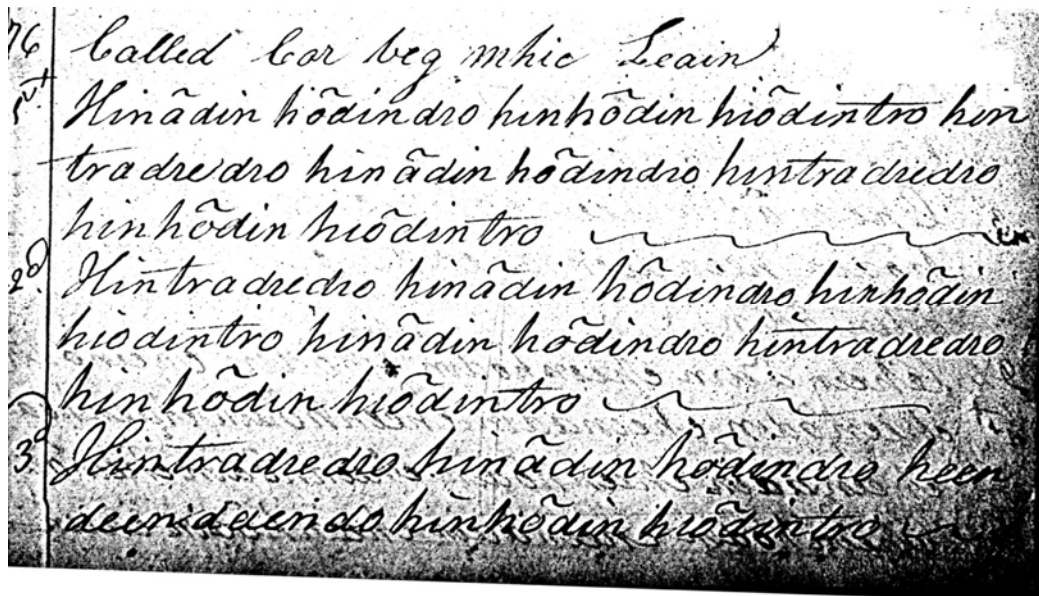 76 Called Cor beg mhic Leain
1st Hinãdin hõdindro hinhõdin hiõdintro hin
tradredro hinãdin hõdindro hintradredro
hinhõdin hiõdintro
2d Hintradredro hinãdin hõdindro hinhõdin
hiodintro hinãdin hõdindro hintradredro
hinhõdin hiõdintro
3d Hintradredro hinãdin hõdindro heen
hinhiõdin hiõdintro